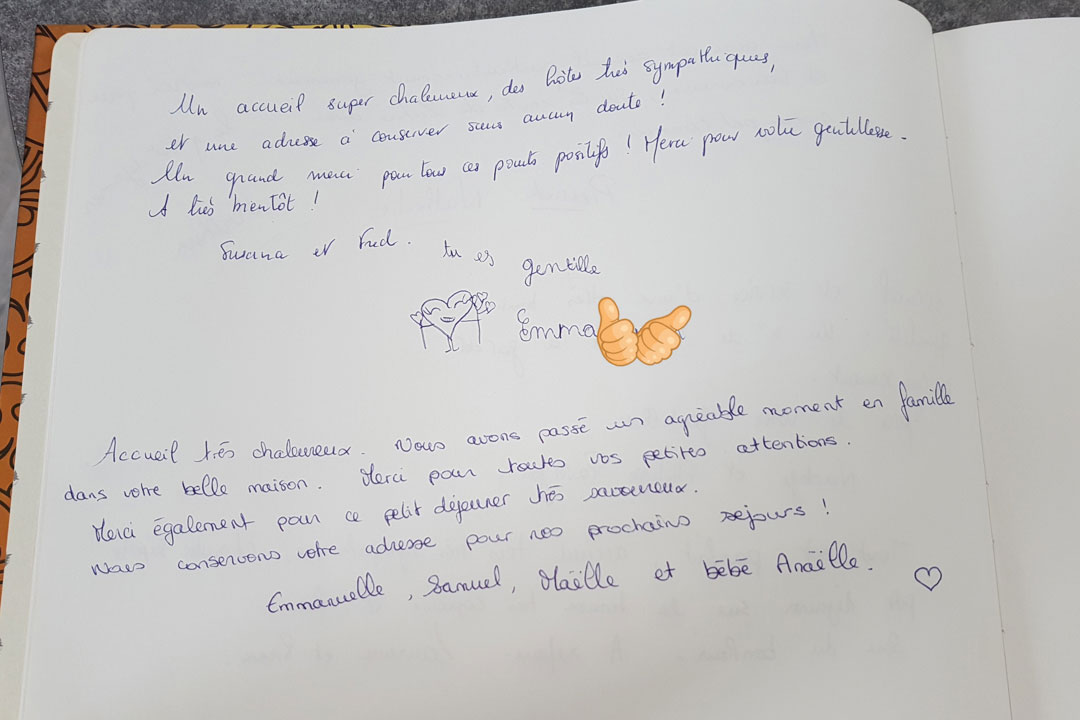 Un accueil super chaleureux, des hôtes très sympathiques,
et une adresse à conserver sans aucun doute !
Un grand merci pour tous ces points positifs ! Merci pour votre gentillesse.
A très bientôt !
Susana et Fred. tu es gentille
Emma
Accueil très chaleureux. Nous avons passé un agréable moment en famille
dans votre belle maison. Merci pour toutes vos petites attentions.
Merci également pour ce petit déjeuner très savoureux.
Nous conservons votre adresse pour nos prochains séjours !
Emmanuelle, Samuel, Maëlle et bébé Anaëlle.